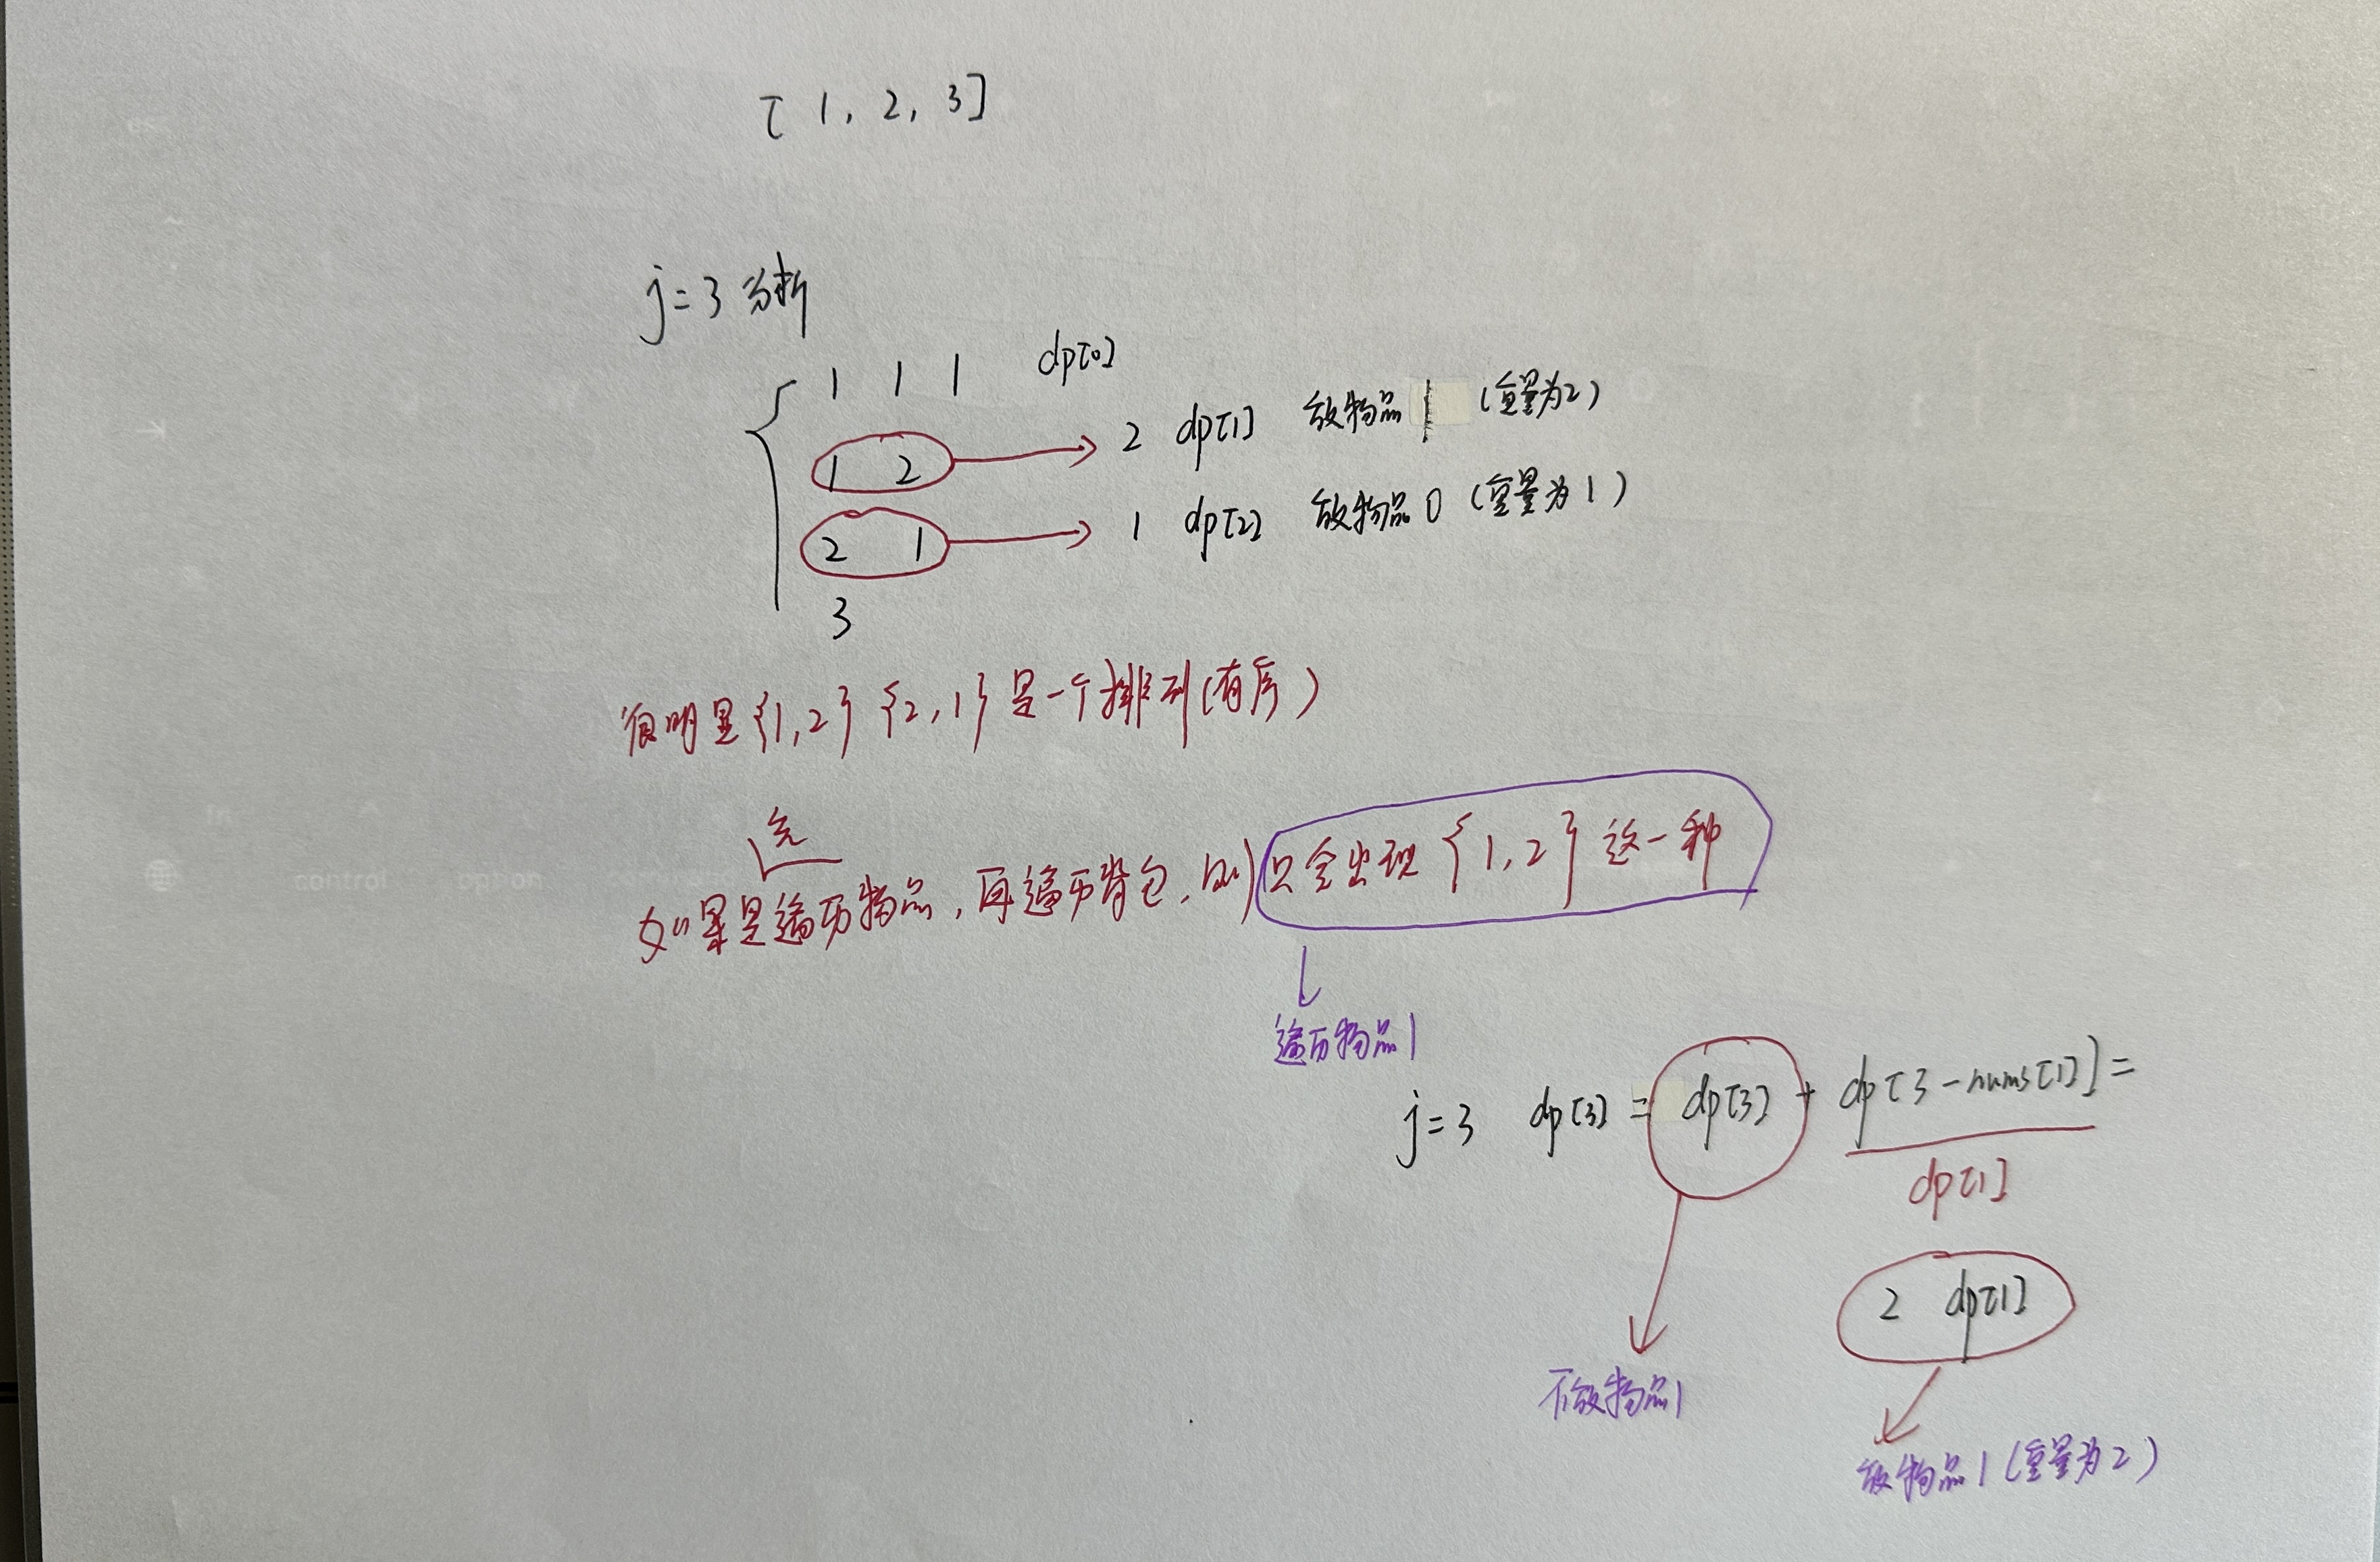 [1, 2, 3]
j=3 分析
1 1 1 dp[0]
1 2 → 2 dp[1] 放物品1 (重量为2)
2 1 → 1 dp[2] 放物品0 (重量为1)
3
很明显{1,2} {2,1} 是一个排列(有序)
先
如果是遍历物品,再遍历背包,则只会出现{1,2}这一种
遍历物品1
j=3 dp[3] = dp[3] + dp[3-nums[1]] =
dp[1]
2 dp[1]
不放物品1
放物品1(重量为2)